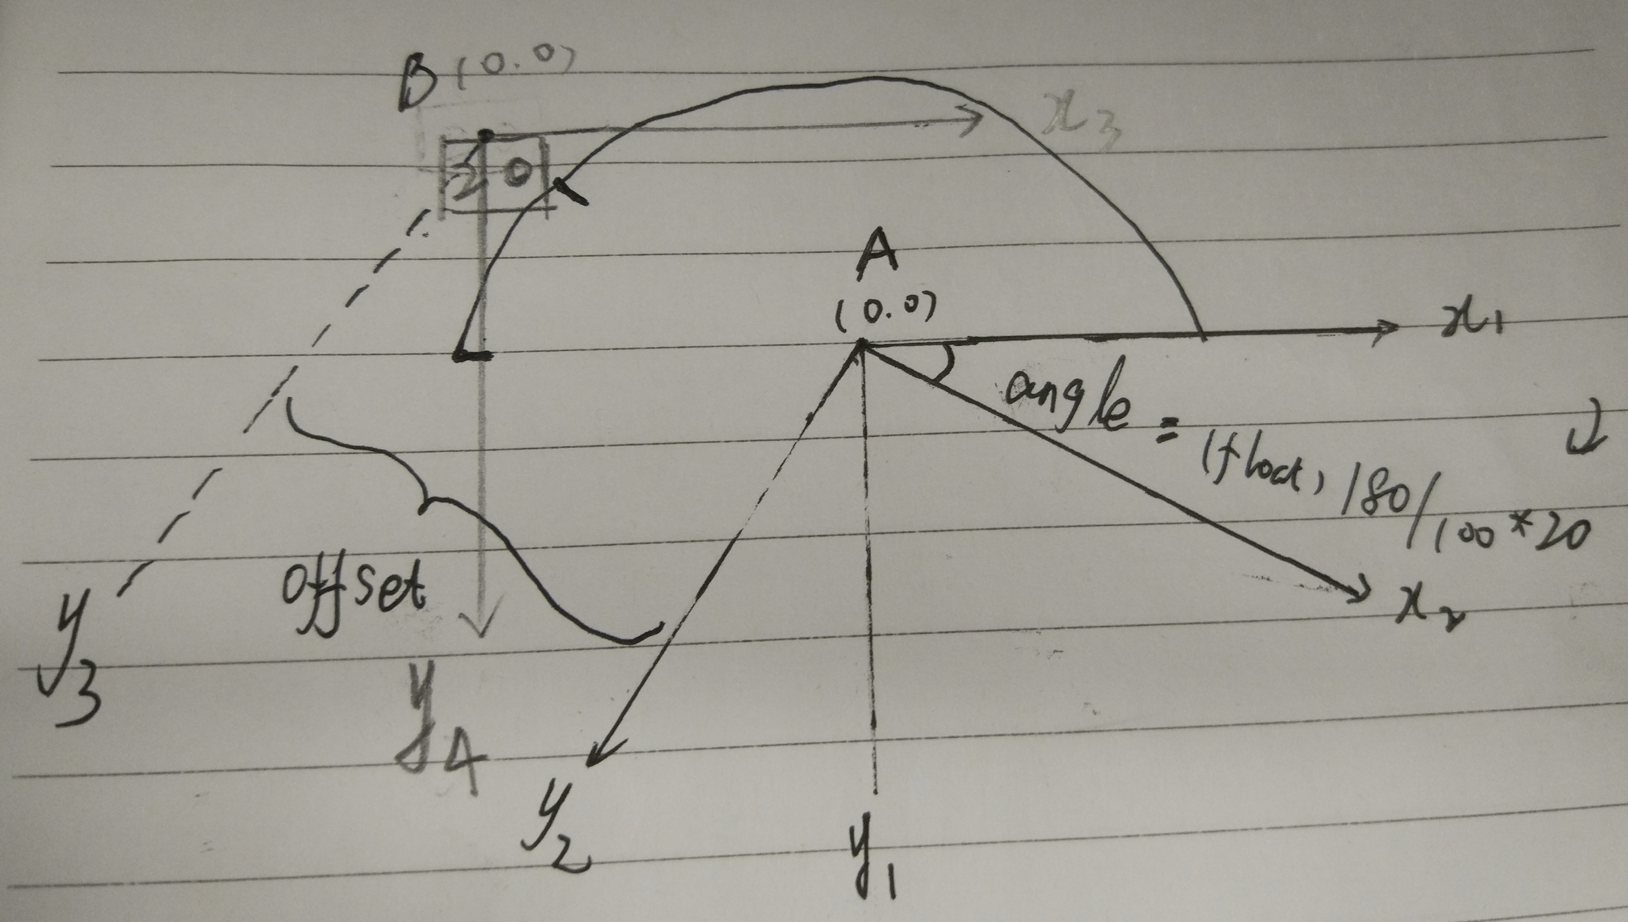 B (0.0)
x3
20
A
(0.0)
x1
angle = (float) 180/100*20
x2
offset
y3
y4
y2
y1